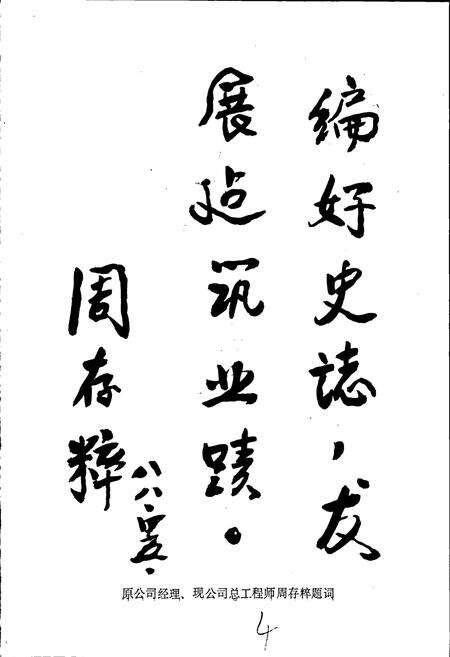 编好史誌，发
展迠筑业蹟。
周存粹
八八.
原公司经理、现公司总工程师周存粹题词
4